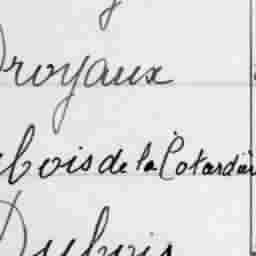 Droyaux
ubois de la Cotardiè
Dubois